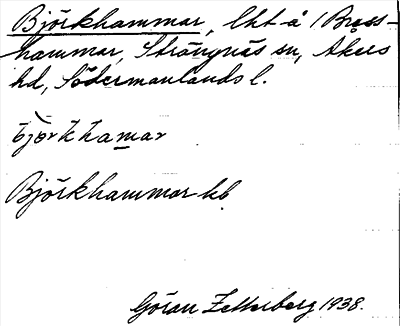 Björkhammar, lht å 1 Bress-
hammar, Strängnäs sn, Åkers
hd, Södermanlands l.
björkhamar
Björkhammar kb
Göran Zetterberg 1938.